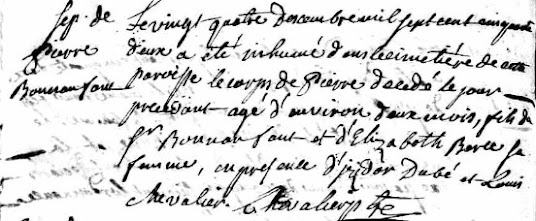 Sep. de Pierre Bonnanfant
Le vingt quatre decembre mil sept cent cinquante
deux a été inhumé dans le cimetière de cette
paroisse le corps de Pierre decedé le jour
precedant agé d'environ deux mois, fils de
Pr Bonnanfant et d'Elizabeth Barce sa
femme, en presence d'isidor Dubé et Louis
Chevalier Chevalier ptre